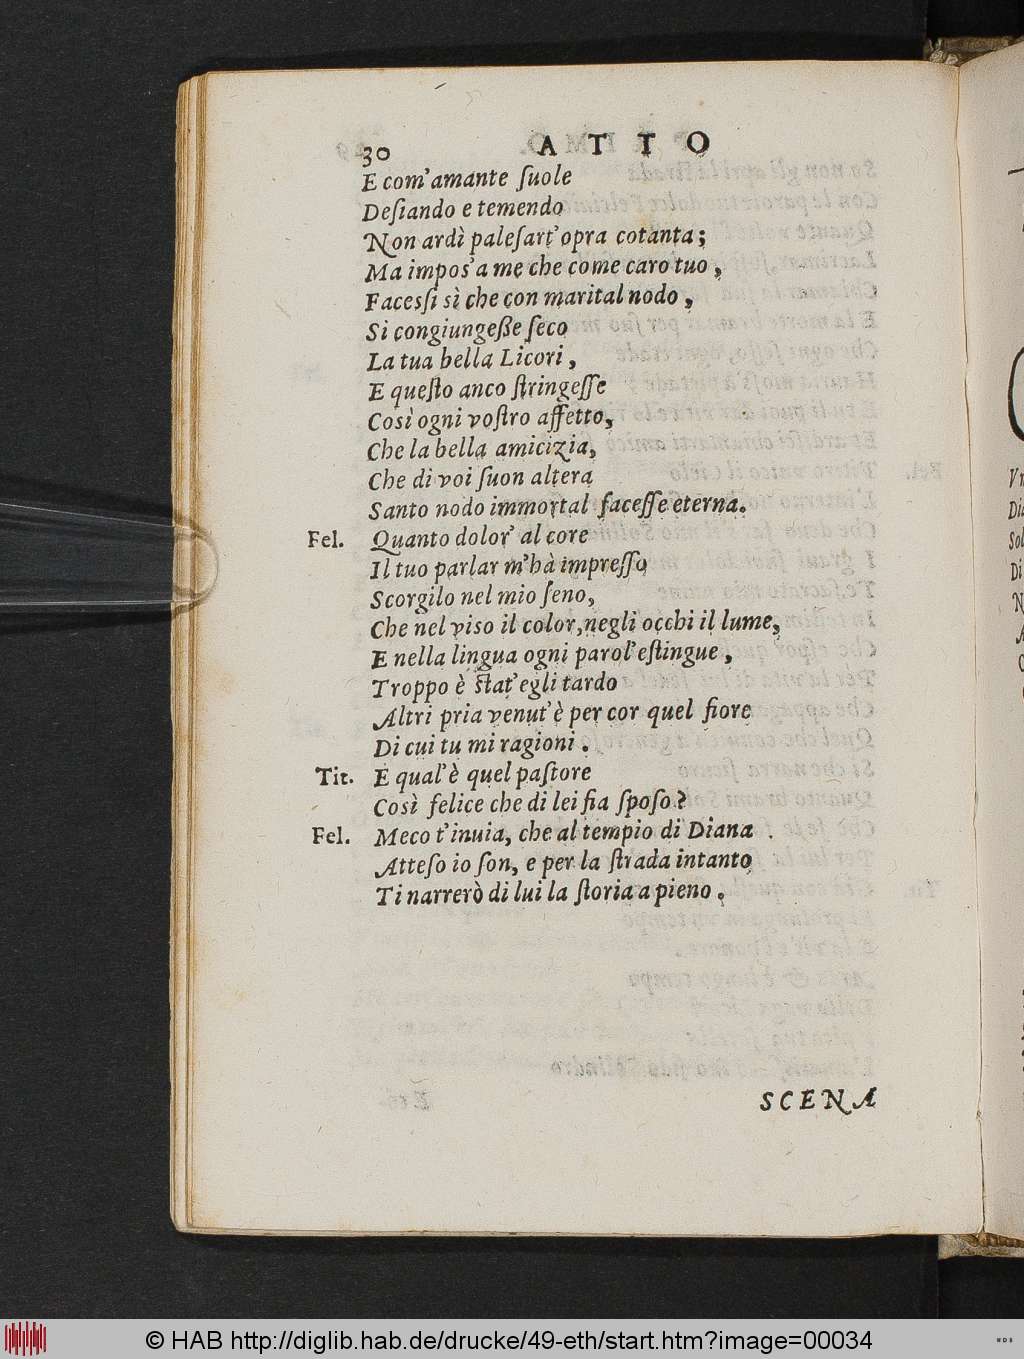 30 ATTO
E com'amante ſuole
Deſiando e temendo
Non ardì paleſart'opra cotanta;
Ma impoſ'a me che come caro tuo,
Faceſſi sì che con marital nodo,
Si congiungeße ſeco
La tua bella Licori,
E queſto anco ſtringeſſe
Così ogni voſtro affetto,
Che la bella amicizia,
Che di voi ſuon altera
Santo nodo immortal faceſſe eterna.
Fel. Quanto dolor' al core
Il tuo parlar m'hà impreſſo
Scorgilo nel mio ſeno,
Che nel viso il color, negli occhi il lume,
E nella lingua ogni parol'eſtingue,
Troppo è ſtat'egli tardo
Altri pria venut'è per cor quel fiore
Di cui tu mi ragioni.
Tit. E qual'è quel paſtore
Così felice che di lei ſia ſpoſo?
Fel. Meco t'inuia, che al tempio di Diana
Atteſo io ſon, e per la ſtrada intanto
Ti narrerò di lui la ſtoria a pieno.
SCENA
© HAB http://diglib.hab.de/drucke/49-eth/start.htm?image=00034